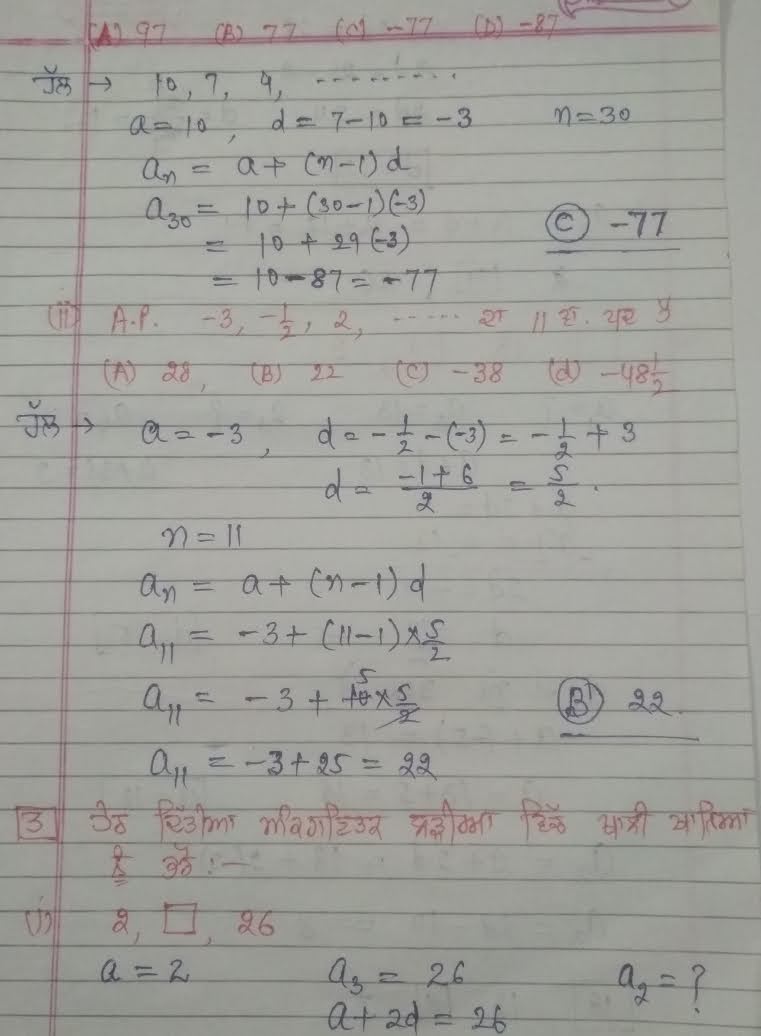 (A) 97 (B) 77 (C) -77 (D) -87
ਹੱਲ → 10, 7, 4, ..........
a = 10, d = 7-10 = -3 n = 30
aₙ = a + (n-1) d
a₃₀ = 10 + (30-1)(-3)
= 10 + 29(-3) Ⓒ -77
= 10 - 87 = -77
(ii) A.P. -3, -1/2, 2, ...... ਦਾ 11 ਵਾਂ ਪਦ ਹੈ
(A) 28, (B) 22 (C) -38 (d) -48 1/2
ਹੱਲ → a = -3, d = -1/2 - (-3) = -1/2 + 3
d = (-1+6)/2 = 5/2.
n = 11
aₙ = a + (n-1) d
a₁₁ = -3 + (11-1) × 5/2
a₁₁ = -3 + 10 5 × 5/2 Ⓑ 22
a₁₁ = -3 + 25 = 22
3 ਹੇਠ ਦਿੱਤੀਆਂ ਅੰਕਗਣਿਤਕ ਲੜੀਆਂ ਵਿੱਚ ਖਾਲੀ ਖਾਨਿਆਂ
ਨੂੰ ਭਰੋ :-
(i) 2, □, 26
a = 2 a₃ = 26 a₂ = ?
a + 2d = 26